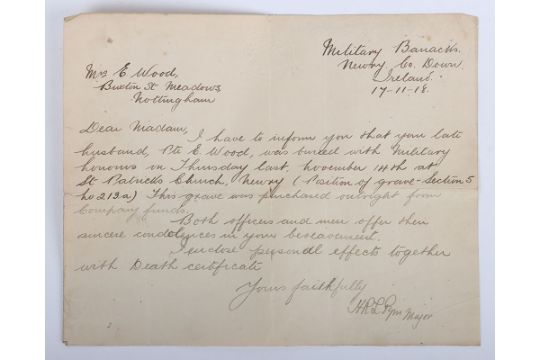 Military Barracks.
Newry Co. Down.
Ireland.
17-11-18.
Mrs E Wood,
St Meadows
Nottingham
Dear Madam,
I have to inform you that your late
husband, Pte E Wood, was buried with Military
honours on Thursday last, November 14th at
St Patricks Church, Newry (Position of grave - Section 5
No 219a) This grave was purchased outright from
Company funds.
Both officers and men offer their
sincere condolences in your bereavement.
I enclose personal effects together
with Death certificate
Yours faithfully
Major